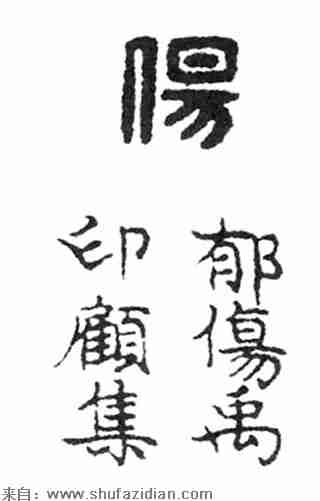 傷
郁傷禹
印顧集
来自：www.shufazidian.com